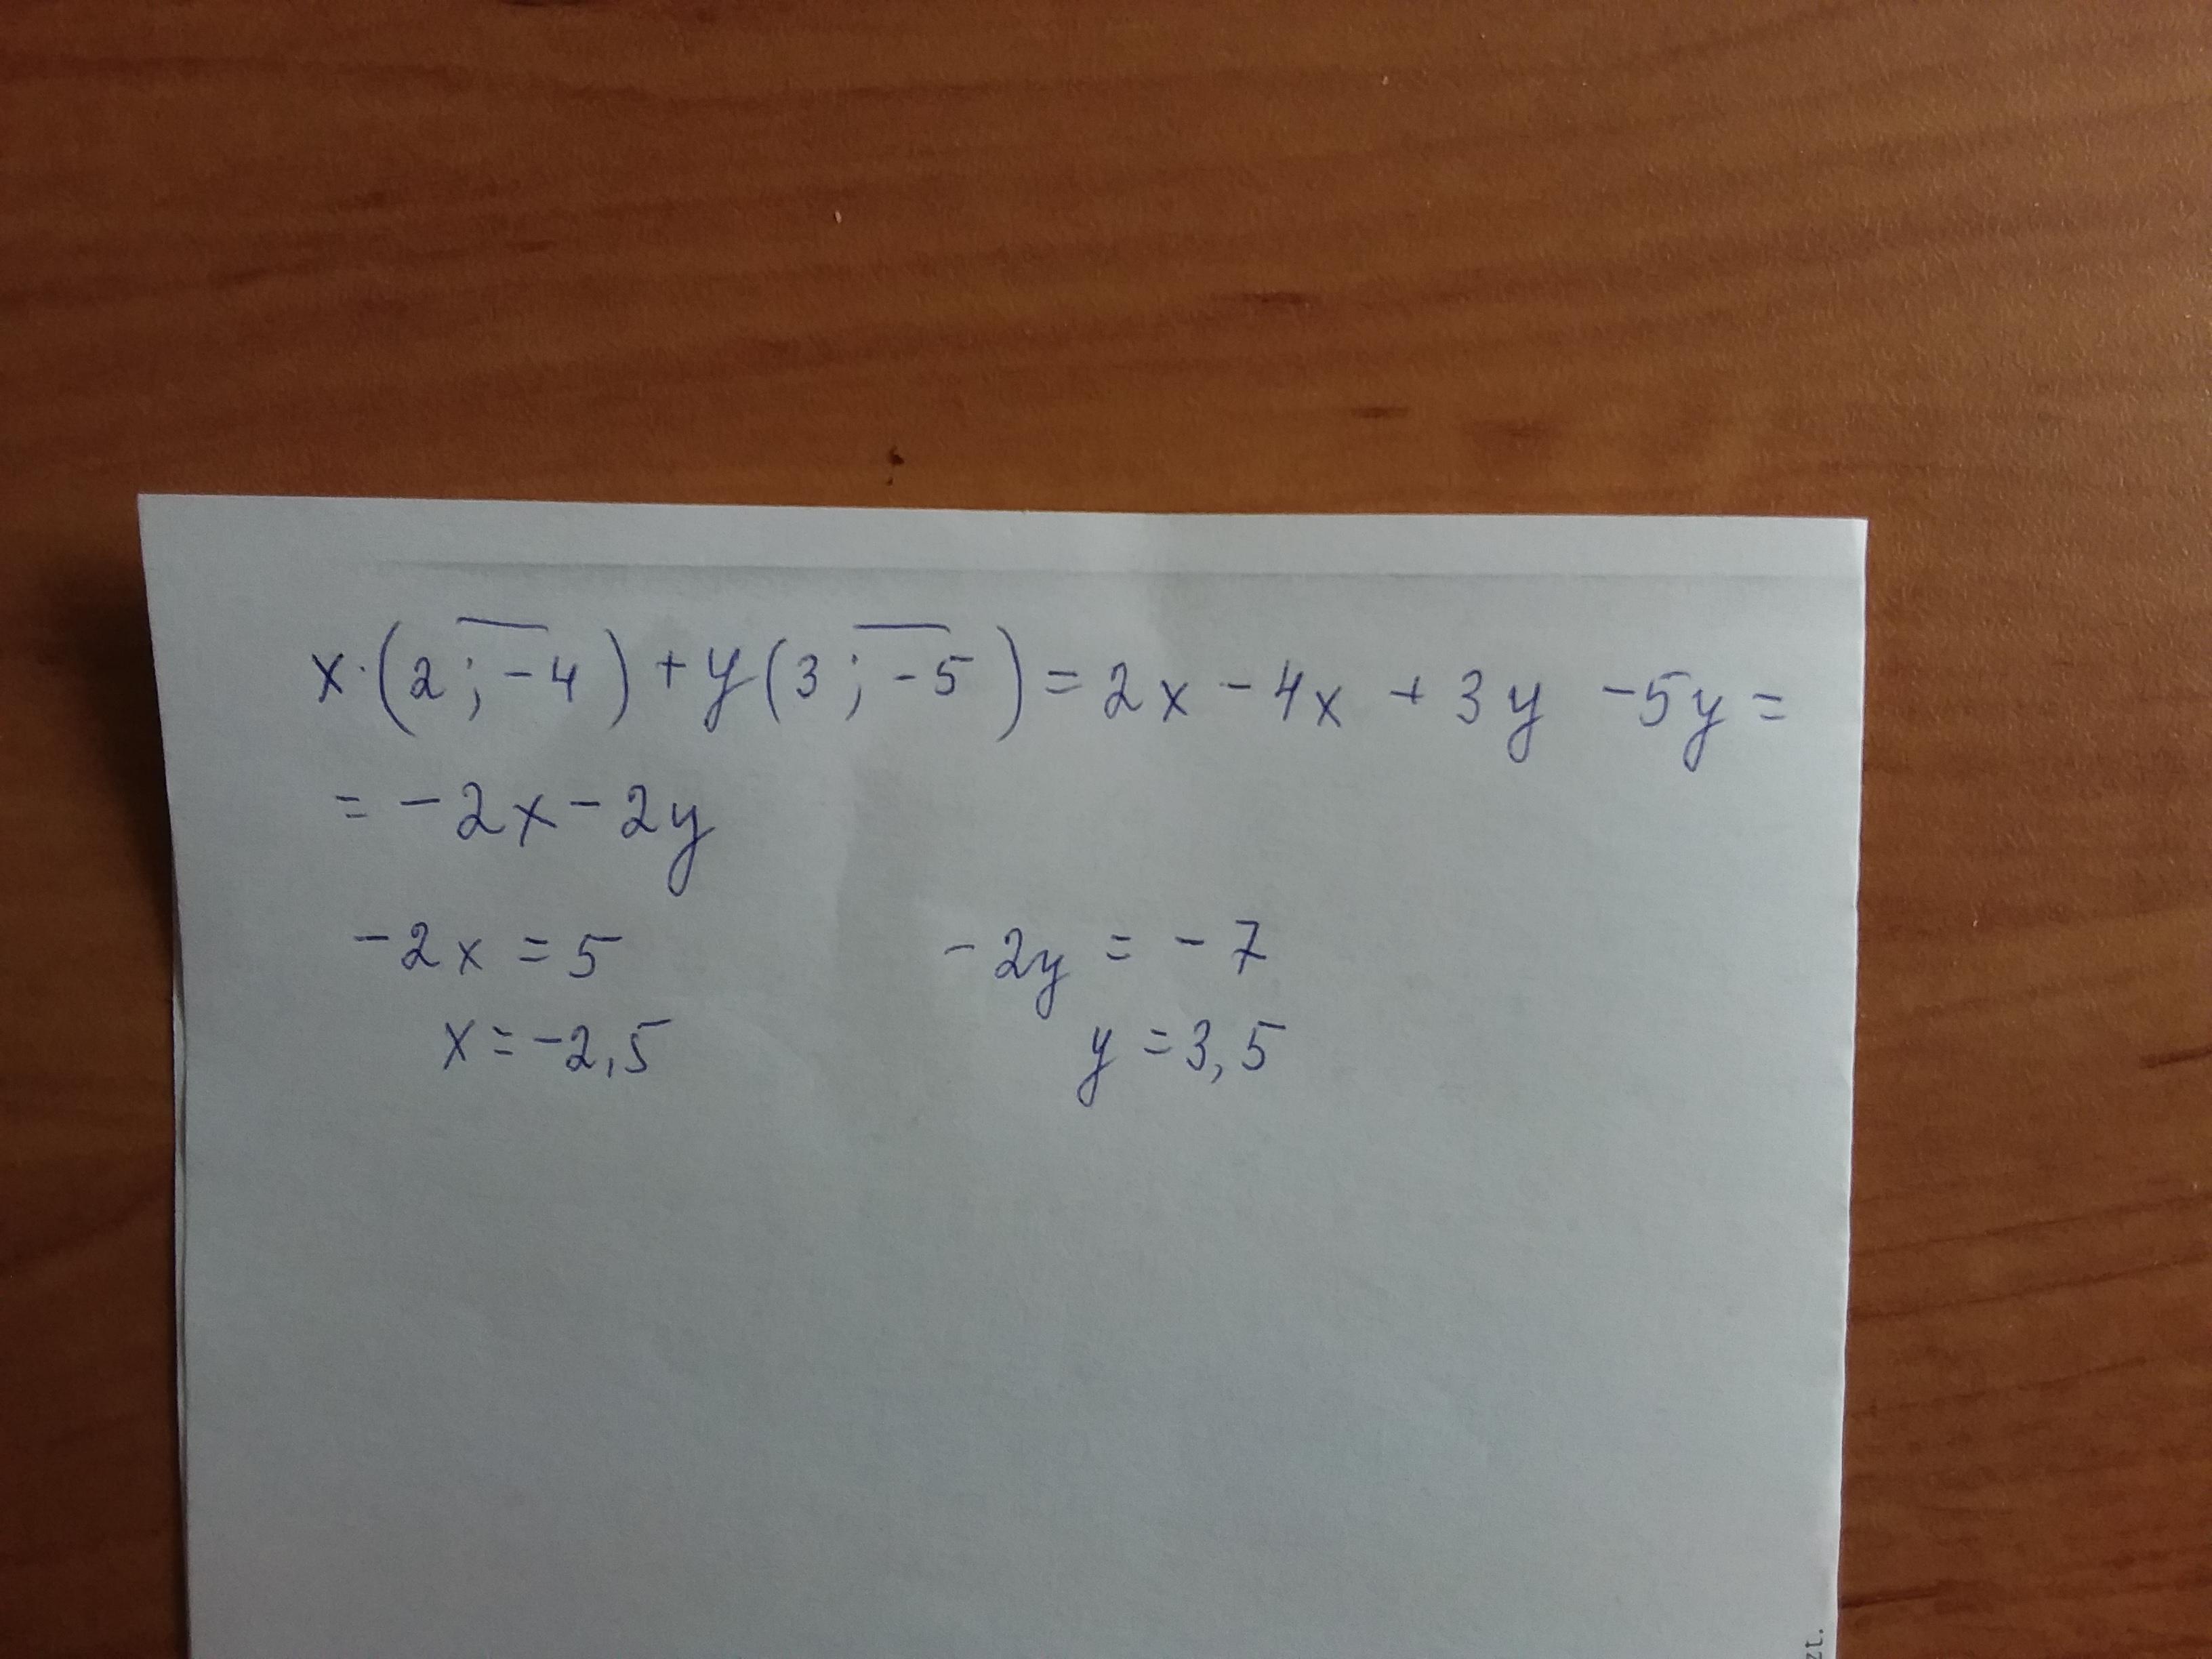 x·(2 ; -4) + y(3 ; -5) = 2x - 4x + 3y - 5y =
= -2x - 2y
-2x = 5 -2y = -7
x = -2,5 y = 3,5
zt.